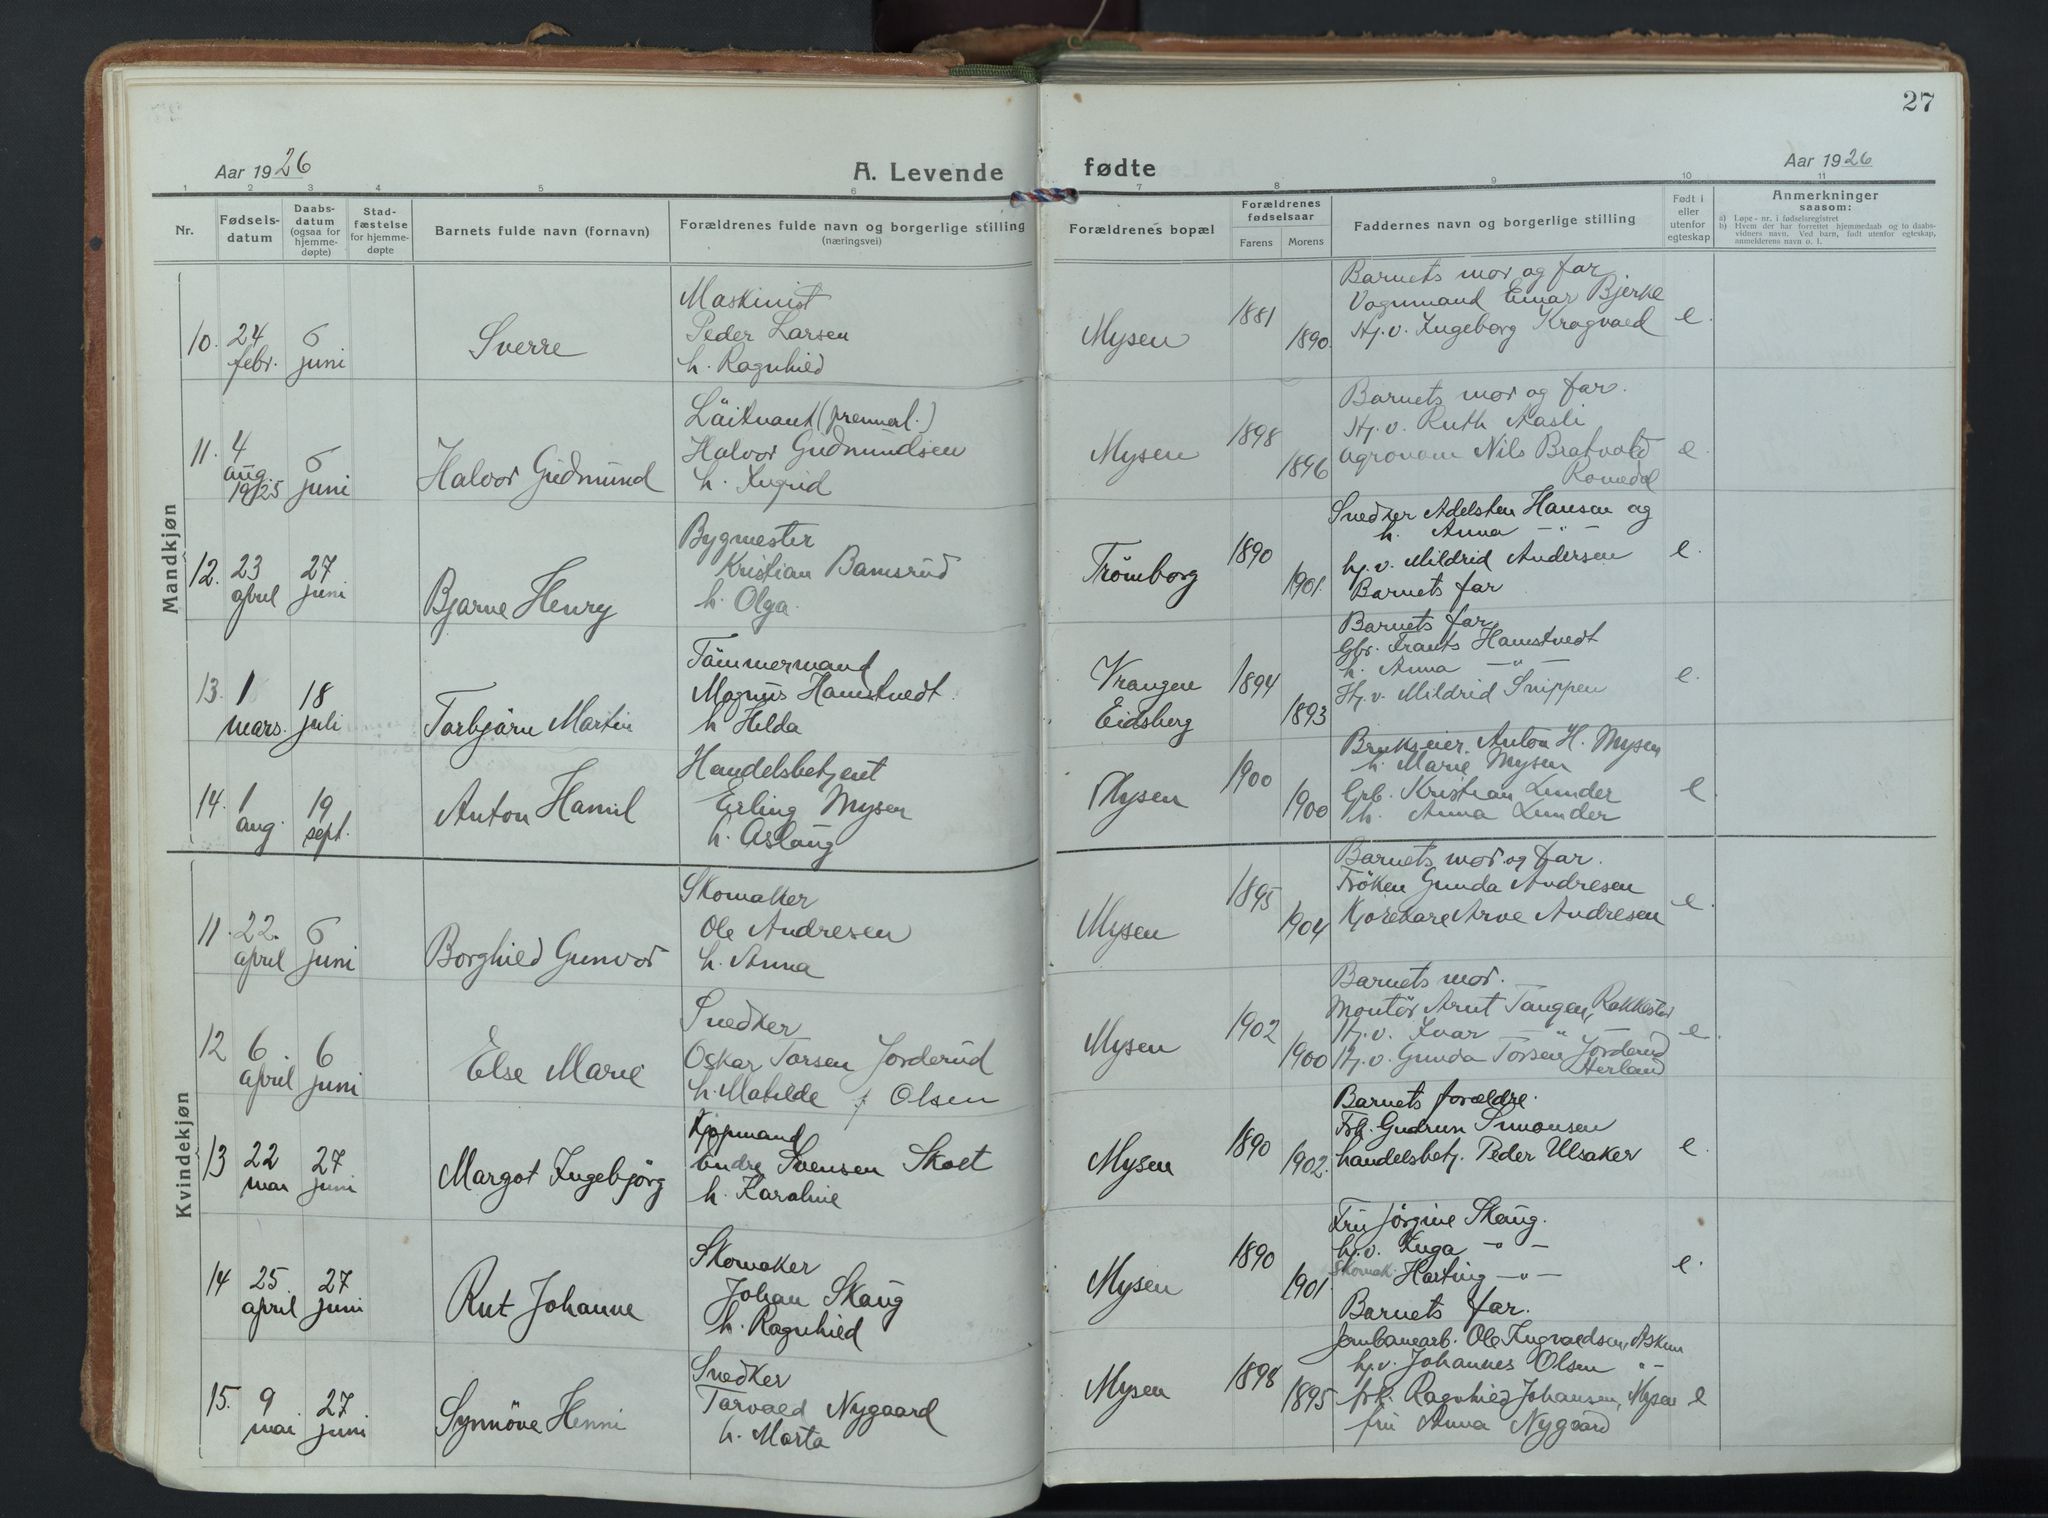 27
Aar 1926
A. Levende fødte
Aar 1926
1 2 3 4 5 6 7 8 9 10 11
Nr.
Fødsels-
datum
Daabs-
datum
(ogsaa for
hjemme-
døpte)
Stad-
fæstelse
for hjemme-
døpte
Barnets fulde navn (fornavn)
Forældrenes fulde navn og borgerlige stilling
(næringsvei)
Forældrenes bopæl
Forældrenes
fødselsaar
Farens
Morens
Faddernes navn og borgerlige stilling
Født i
eller
utenfor
egteskap
Anmerkninger
saasom:
a) Løpe-nr. i fødselsregistret
b) Hvem der har forrettet hjemmedaab og to daabs-
vidners navn. Ved barn, født utenfor egteskap,
anmelderens navn o. l.
Mandkjøn
10. 24 febr. 6 juni
Sverre
Maskinist
Peder Larsen
h. Ragnhild
Mysen
1881
1890.
Barnets mor og far
Vognmand Einar Bjerke
Hj.v. Ingeborg Kragvald
e.
11. 4 aug. 1925 6 juni
Halvor Gudmund
Läitnant (premierl.)
Halvor Gudmundsen
h. Ingrid
Mysen
1898
1896
Barnets mor og far.
Hj.v. Ruth Aasli
agronom Nils Bratvold
Romedal
e.
12. 23 april 27 juni
Bjarne Henry
Bygmester
Kristian Bamsrud
h. Olga.
Trömborg
1890
1901.
Snedker Adelsten Hansen og
h. Anna — " —
hj.v. Mildrid Andersen
Barnets far
e.
13. 1 mars. 18 juli
Torbjörn Martin
Tömmermand
Magnus Hamstvedt.
h Hilda
Vrangen
Eidsberg
1894
1893
Barnets far
Gbr. Frants Hamstvedt
h. Anna — " —
Hj.v. Mildrid Snippen
e.
14. 1 aug. 19 sept.
Anton Hamil
Handelsbetjent
Erling Mysen
h. Aslaug
Mysen
1900
1900
Brukseier Anton H. Mysen
h. Marie Mysen
Grb. Kristian Lunder
h. Anna Lunder
e.
Kvindekjøn
11. 22. april 6 juni
Borghild Gunvor
Skomaker
Ole Andresen
h. Anna
Mysen
1895
1904
Barnets mor og far.
Fröken Gunda Andresen
Kjörekare Arve Andresen
e.
12 6. april. 6 juni
Else Marie
Snedker
Oskar Torsen Jorderud
h. Matilde f. Olsen
Mysen
1902
1900
Barnets mor.
Montör Arnt Tangen, Rakkestad
Hj.v. Ivar — " —
Hj.v. Gunda Torsen Jorderud
Herland
e
13 22 mai 27 juni
Margot Ingebjörg
Kjøpmand
Andre Svensen Skoet
h. Karoline
Mysen
1890
1902.
Barnets forældre.
Frk. Gudrun Simonsen
handelsbetj. Peder Ulsaker
e.
14 25. april 27 juni
Rut Johanne
Skomaker
Johan Skaug
h. Ragnhild
Mysen
1890
1901.
Fru Jörgine Skaug.
hj.v. Inga - " -
Skomak. Harting - " -
Barnets far.
e.
15. 9 mai. 27 juni
Synnöve Henni
Snedker
Torvald Nygaard
h. Marta
Mysen
1898
1895
Jernbanearb. Ole Ingvaldsen, Askim
hj.v. Johannes Olsen " -
frk. Ragnhild Johansen, Mysen
fru Anna Nygaard
e